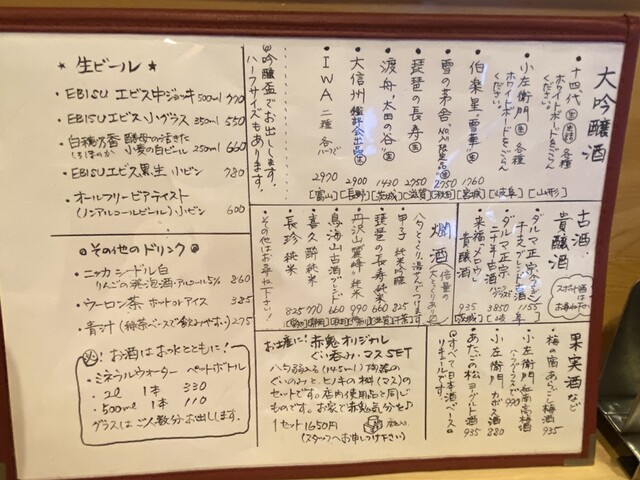 ★ 生ビール ★
・EBISU エビス中ジョッキ 500ml 770
・EBISU エビス小グラス 350ml 550
・白穂乃香 酵母の活きた
しろほのか 小麦の白ビール 250ml 660
・EBISU エビス黒生 小ビン 780
・オールフリービアテイスト
(ノンアルコールビール) 小ビン 600
◎その他のドリンク◎
・ニッカ シードル白
りんごの発泡酒・アルコール5% 860
・ウーロン茶 ホット or アイス 385
・青汁 (緑茶ベースで飲みやすい) 275
お酒はお水とともに!
・ミネラルウォーター ペットボトル
・2ℓ 1本 330
・500ml 1本 110
グラスはご人数分お出しします。
大吟醸酒
・十四代 各種
ホワイトボードをごらんください。 [山形]
・小左衛門 各種
ホワイトボードをごらんください。 [岐阜]
・伯楽星・雪華 1760 [宮城]
・雪の茅舎 No.1限定品 2750 [秋田]
・琵琶の長寿 2750 [滋賀]
・渡舟・太田の谷 1430 [茨城]
・大信州 鑑評会出品 2900 [長野]
・IWA 二種 各ハーフ 2970 [富山]
◎吟醸盃でお出しします。
ハーフサイズもあります。
古酒・貴醸酒
・ダルマ正宗
干支ブレンド酒 1155
・ダルマ正宗
二十年古酒 3850
・来福・メロウ
貴醸酒 935 [茨城]
燗酒
八勺とっくり、湯せんでつけます。
・甲子 純米吟醸 825 [千葉]
・琵琶の長寿 純米 660 [滋賀]
・丹沢山麗峰 純米 990
・鳥海山古酒ブレンド 660
・喜久酔 純米 770 [静岡]
・長珍 純米 825
・その他はお尋ね下さい!
果実酒など
・梅の宿 あらごし梅酒 935
・小左衛門 紅南高梅酒
ハーフグラスで 990
・小左衛門 カボス酒 880
・あたごの松 ヨーグルト酒 935
◎すべて日本酒ベースの
リキュールです。
お土産に! 赤鬼オリジナル
ぐい呑み・マスSET
八勺弱入る(145ml)陶器の
ぐいのみと、ヒノキの枡(マス)の
セットです。店内使用品と同じ
ものです。お家で赤鬼気分を♪
1セット 1650円
(スタッフへお申しつけ下さい)